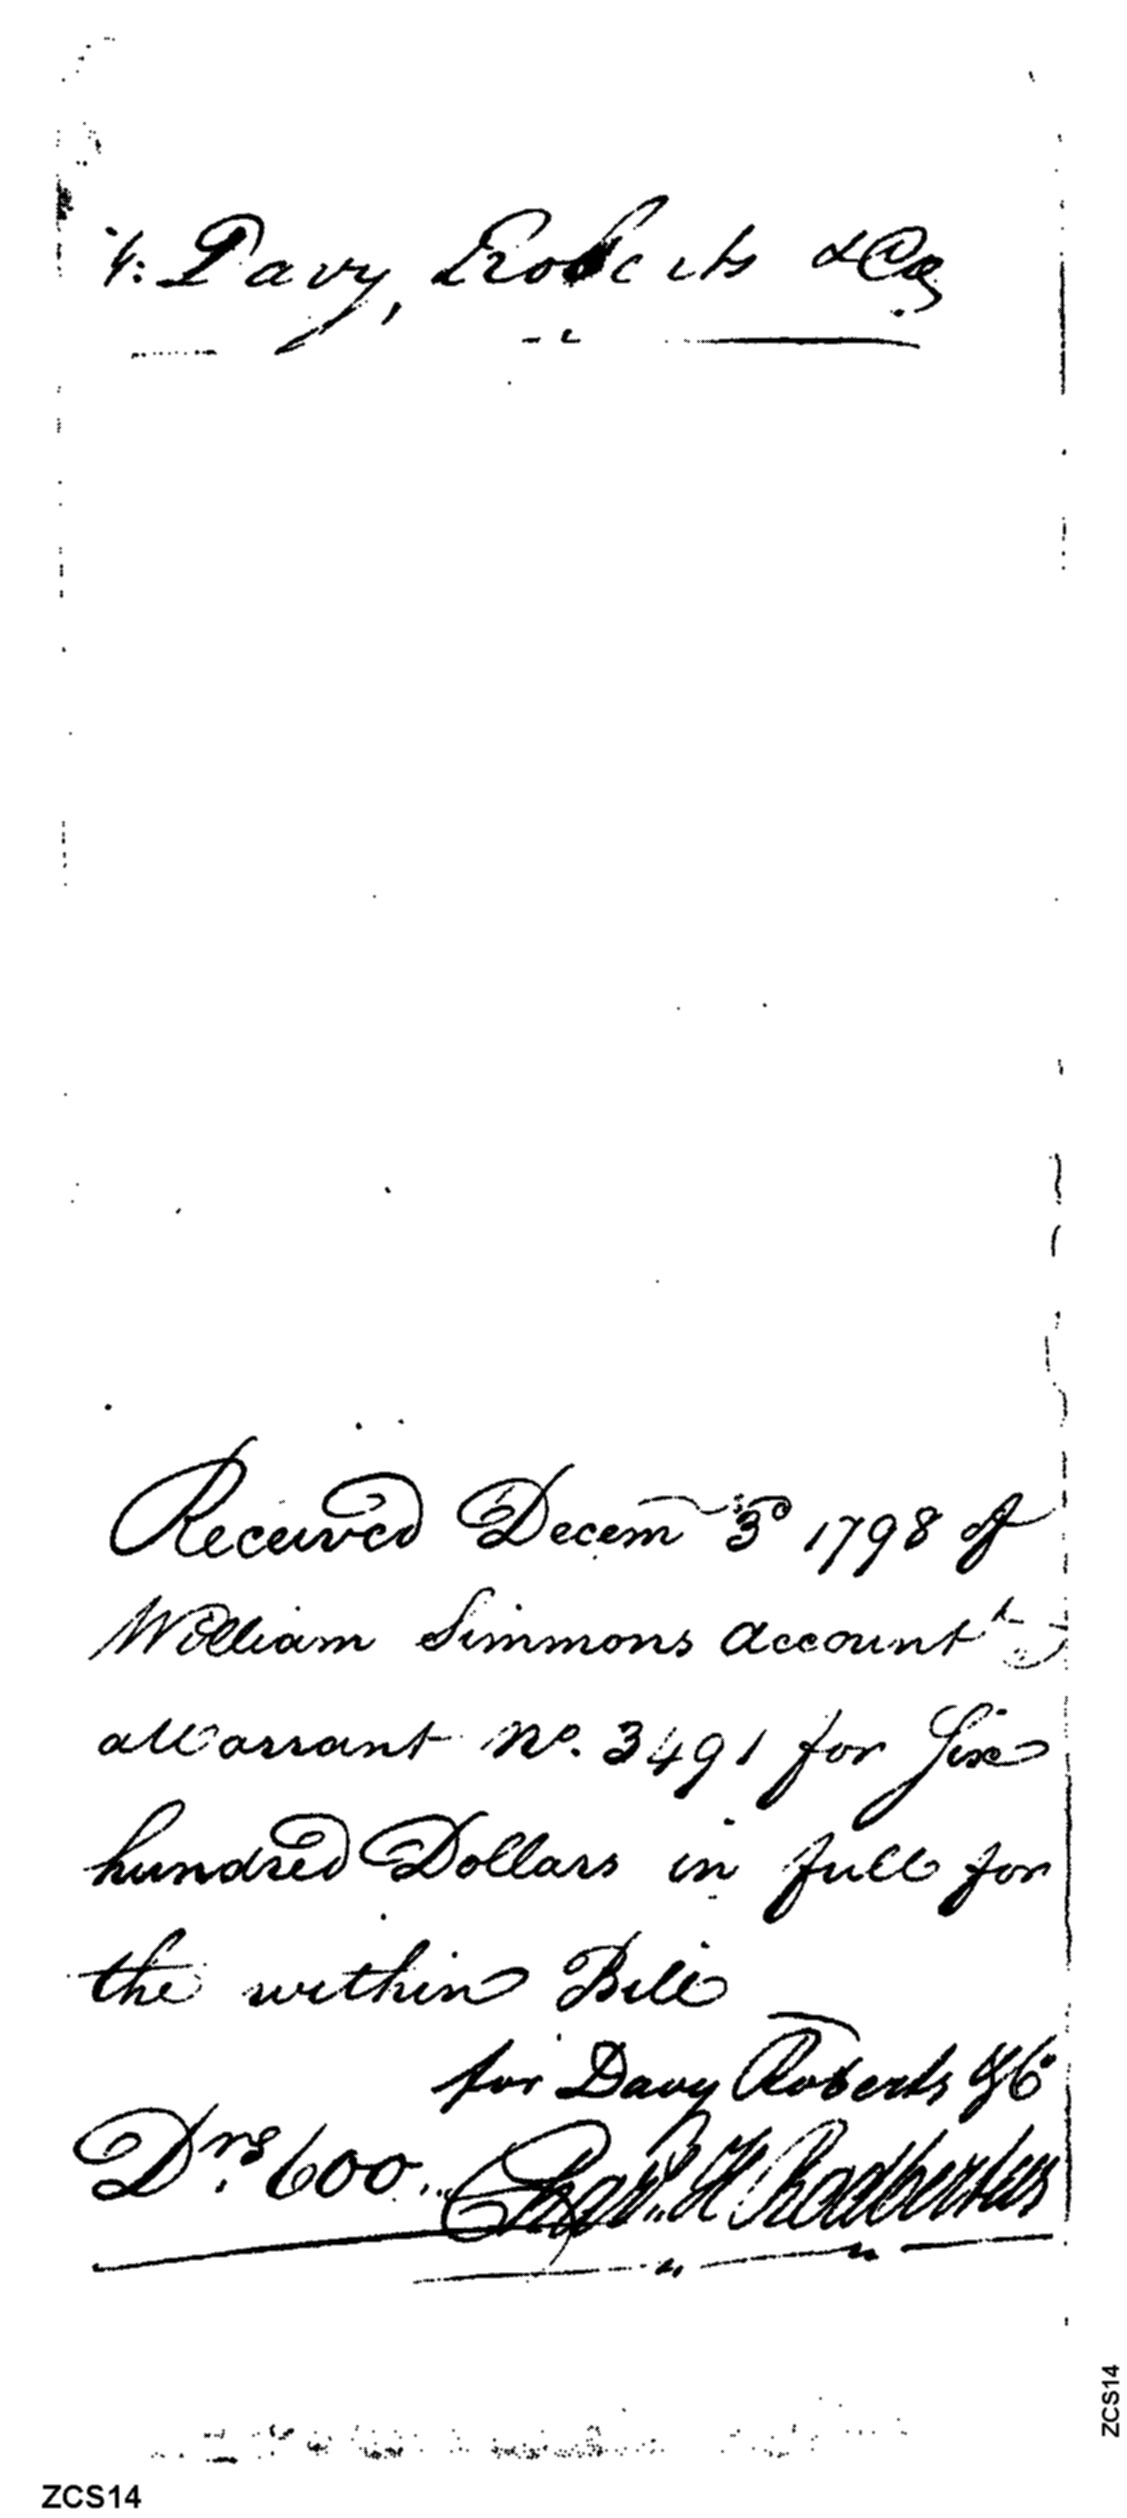 4. Davy, Roberts & Co.
Received Decem 3d 1798 of
William Simmons account
a Warrant No. 3491 for Six
hundred Dollars in full for
the within Bill
for Davy Roberts & Co
Drs 600..
ZCS14
ZCS14